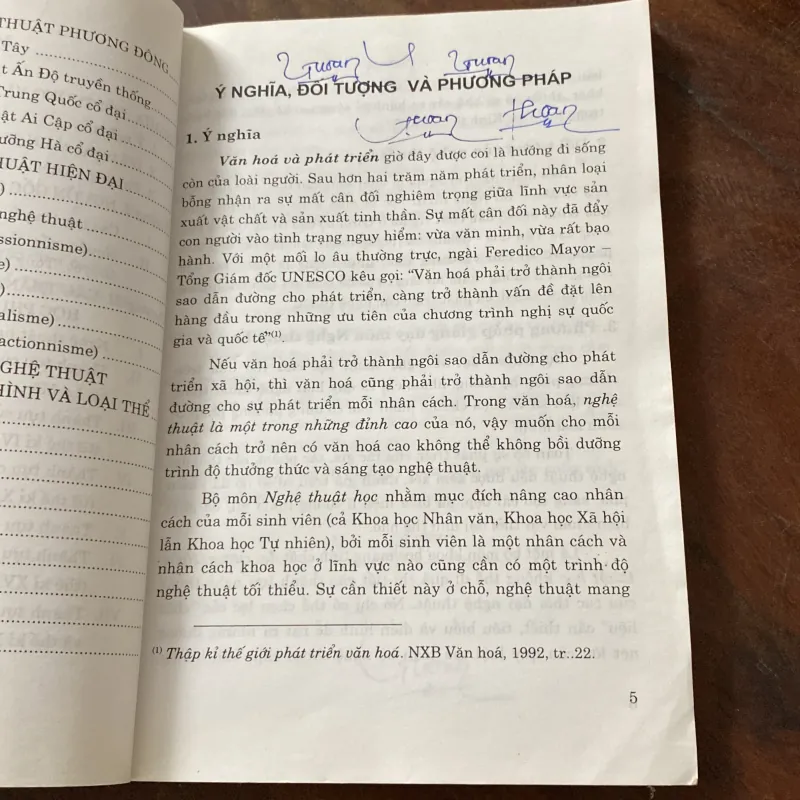 THUẬT PHƯƠNG ĐÔNG
Tây
t Ấn Độ truyền thống
Trung Quốc cổ đại
ật Ai Cập cổ đại
ưỡng Hà cổ đại
HUẬT HIỆN ĐẠI
)
nghệ thuật
ssionnisme)
e)
)
alisme)
actionnisme)
GHỆ THUẬT
HÌNH VÀ LOẠI THỂ
Ý NGHĨA, ĐỐI TƯỢNG VÀ PHƯƠNG PHÁP
1. Ý nghĩa
Văn hoá và phát triển giờ đây được coi là hướng đi sống
còn của loài người. Sau hơn hai trăm năm phát triển, nhân loại
bỗng nhận ra sự mất cân đối nghiêm trọng giữa lĩnh vực sản
xuất vật chất và sản xuất tinh thần. Sự mất cân đối này đã đẩy
con người vào tình trạng nguy hiểm: vừa văn minh, vừa rất bạo
hành. Với một mối lo âu thường trực, ngài Feredico Mayor –
Tổng Giám đốc UNESCO kêu gọi: “Văn hoá phải trở thành ngôi
sao dẫn đường cho phát triển, càng trở thành vấn đề đặt lên
hàng đầu trong những ưu tiên của chương trình nghị sự quốc
gia và quốc tế”(1).
Nếu văn hoá phải trở thành ngôi sao dẫn đường cho phát
triển xã hội, thì văn hoá cũng phải trở thành ngôi sao dẫn
đường cho sự phát triển mỗi nhân cách. Trong văn hoá, nghệ
thuật là một trong những đỉnh cao của nó, vậy muốn cho mỗi
nhân cách trở nên có văn hoá cao không thể không bồi dưỡng
trình độ thưởng thức và sáng tạo nghệ thuật.
Bộ môn Nghệ thuật học nhằm mục đích nâng cao nhân
cách của mỗi sinh viên (cả Khoa học Nhân văn, Khoa học Xã hội
lẫn Khoa học Tự nhiên), bởi mỗi sinh viên là một nhân cách và
nhân cách khoa học ở lĩnh vực nào cũng cần có một trình độ
nghệ thuật tối thiểu. Sự cần thiết này ở chỗ, nghệ thuật mang
(1) Thập kỉ thế giới phát triển văn hoá. NXB Văn hoá, 1992, tr..22.
5